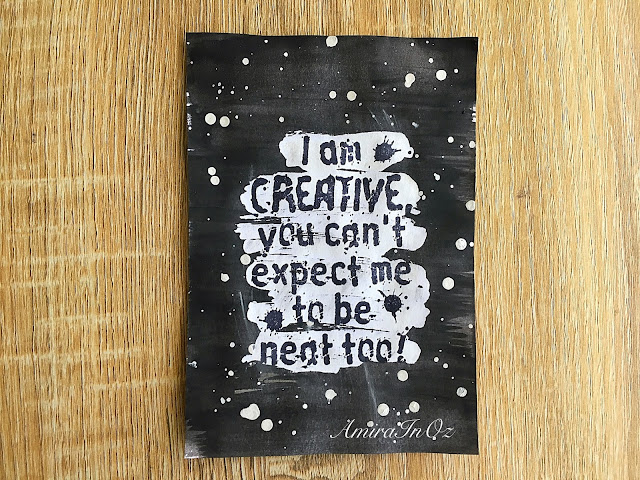 I am
CREATIVE,
you can't
expect me
to be
neat too!
AmiraInOz